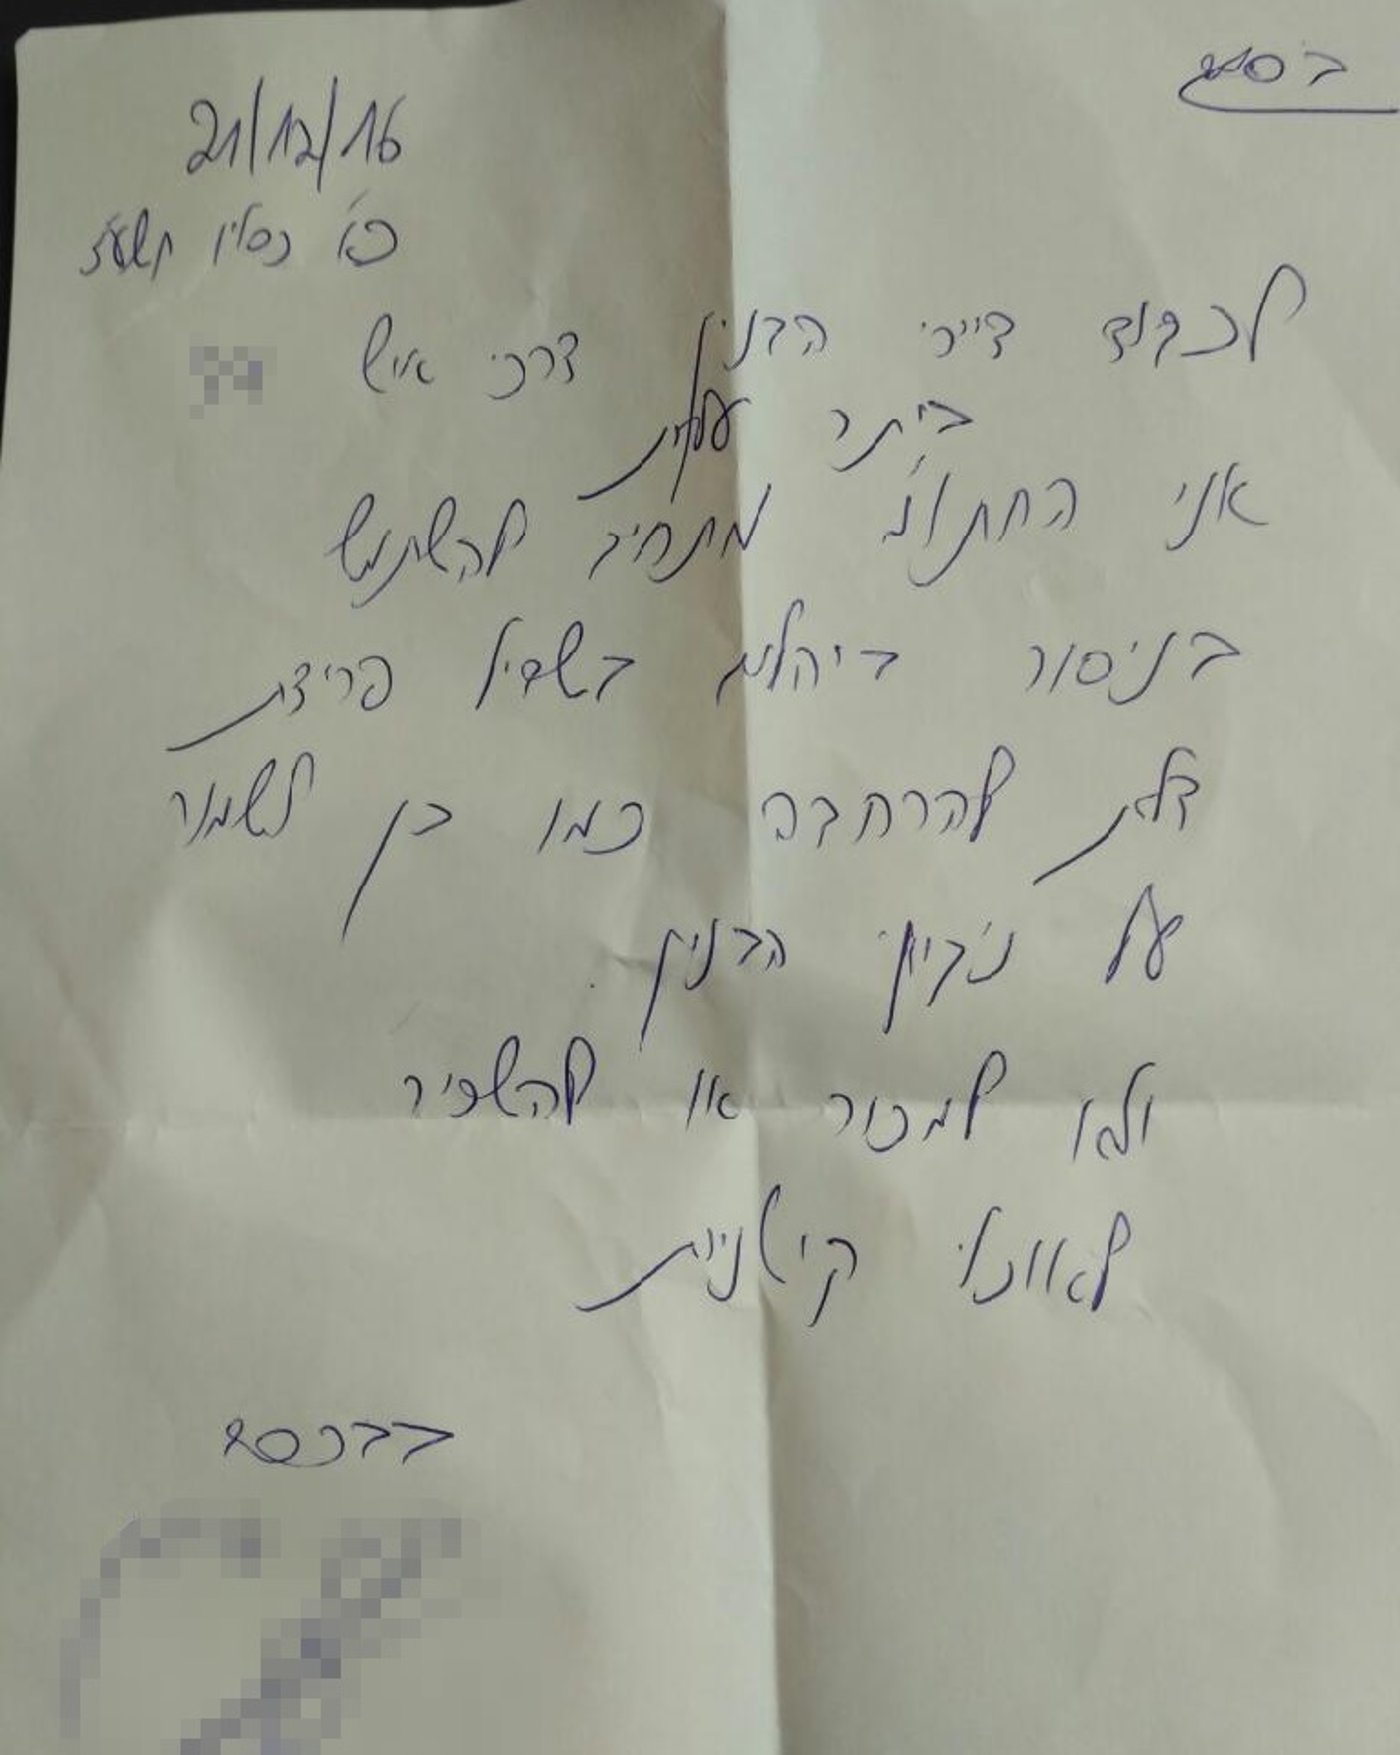 בס"ד
21/12/16
כא' כסליו תשע"ז
לכבוד דיירי הבנין דרכי איש
ביתר עלית
אני החתו"מ מתחיב להשתמש
בניסור ביהלום בשביל פריצת
דלת להרחבה כמו כן לשמור
על נקיון הבנין.
ולא למכור או להשכיר
לאווזלי קיטניות
בברכה